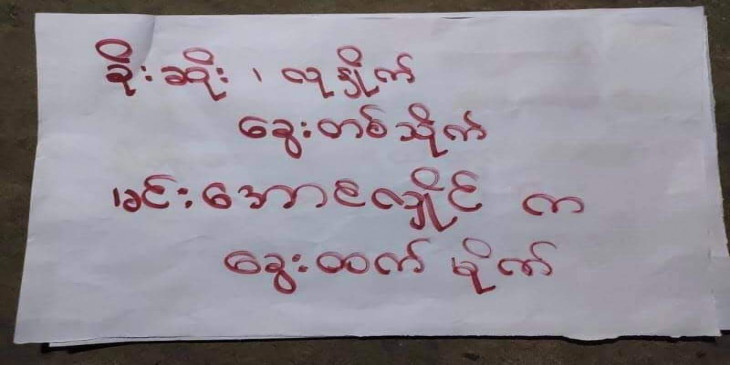 ခိုးဆိုး ၊ လုနှိုက်
ခွေးတစ်သိုက်
မင်းအောင်လှိုင် က
ခွေးထက် မိုက်